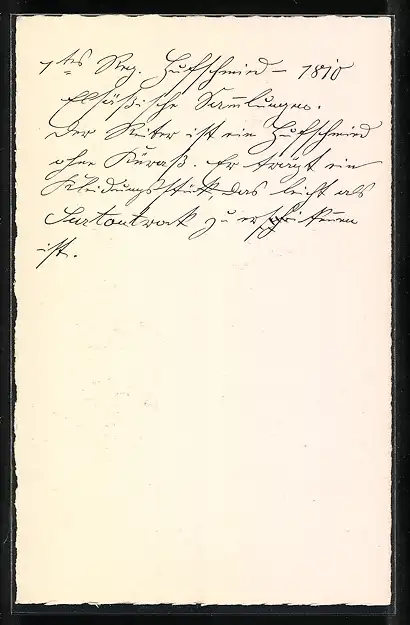 1tes Reg. Hufschmied – 1810
Elsäßische Sammlungen.
Der Reiter ist ein Hufschmied
ohne Küraß. Er trägt ein
Kleidungsstück, das leicht als
Surtoutrock zu erkennen
ist.